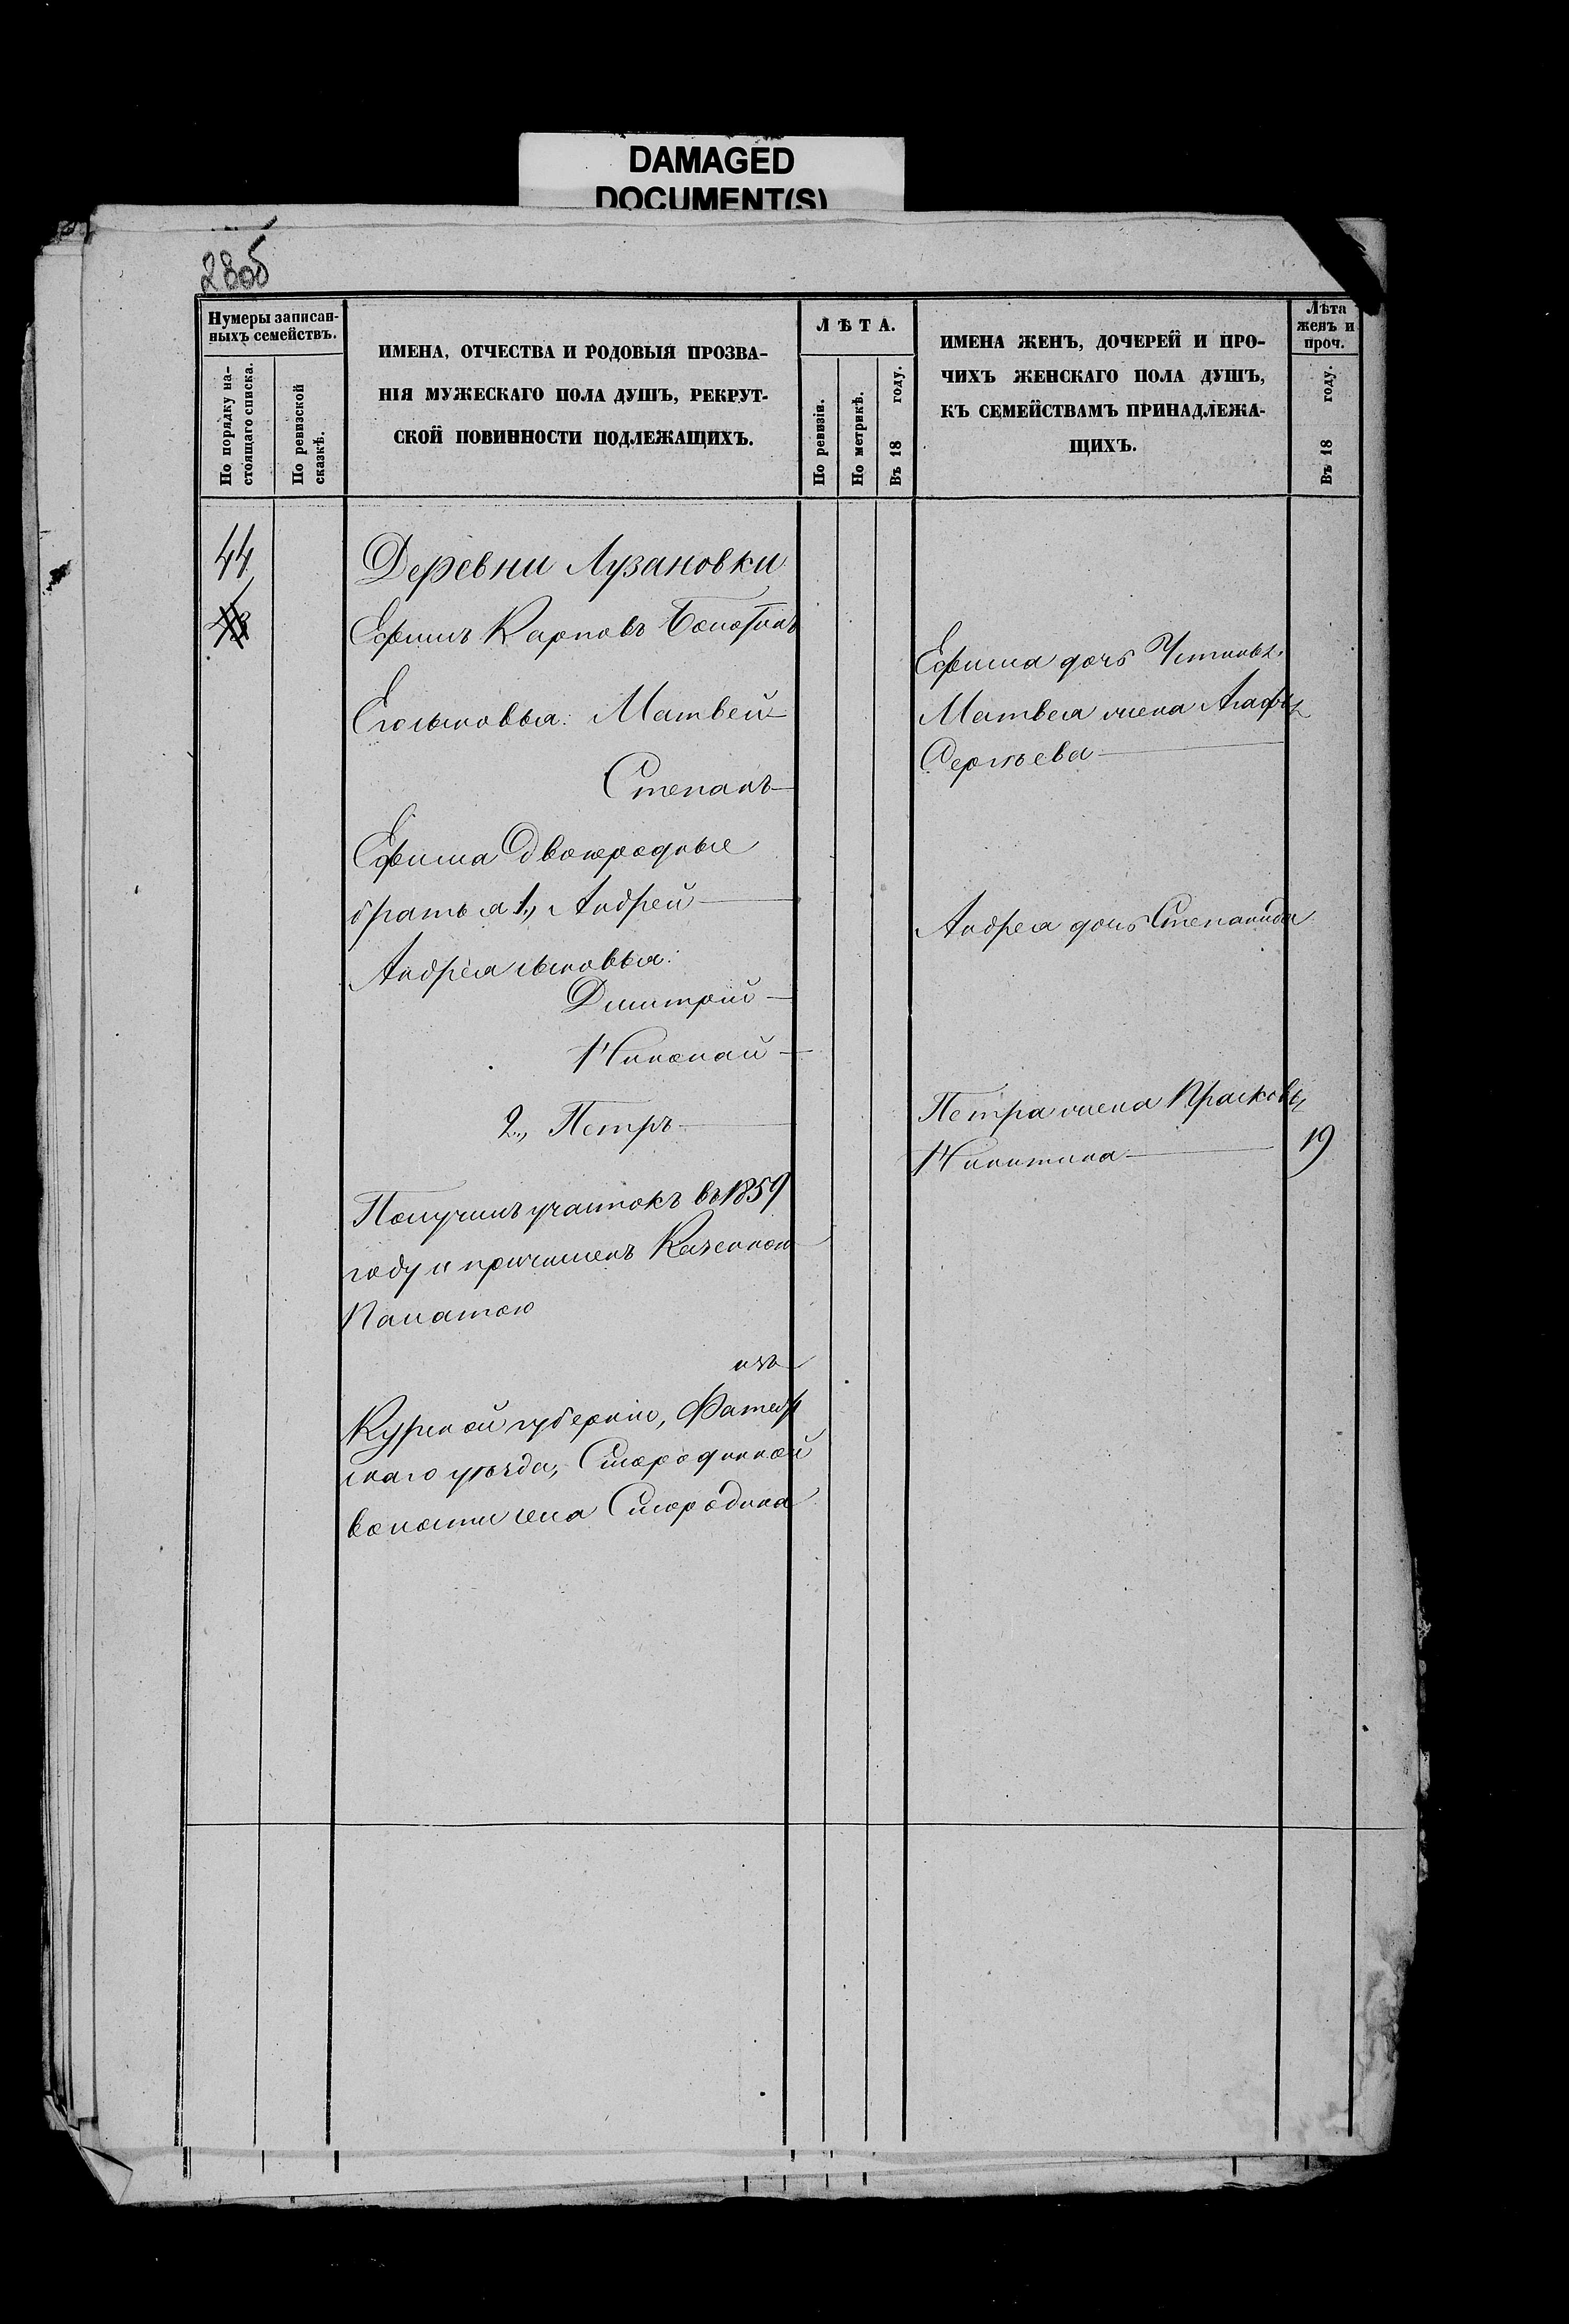 DAMAGED
DOCUMENT(S)
280б
Нумеры записан-
ныхъ семействъ.
По порядку на-
стоящаго списка.
По ревизской
сказкѣ.
ИМЕНА, ОТЧЕСТВА И РОДОВЫЯ ПРОЗВА-
НІЯ МУЖЕСКАГО ПОЛА ДУШЪ, РЕКРУТ-
СКОЙ ПОВИННОСТИ ПОДЛЕЖАЩИХЪ.
ЛѢТА.
По ревизіи.
По метрикѣ.
Въ 18 году.
ИМЕНА ЖЕНЪ, ДОЧЕРЕЙ И ПРО-
ЧИХЪ ЖЕНСКАГО ПОЛА ДУШЪ,
КЪ СЕМЕЙСТВАМЪ ПРИНАДЛЕЖА-
ЩИХЪ.
Лѣта
женъ и
проч.
Въ 18 году.
44
Деревни Лузановки
Ефимъ Карповъ
Его сыновья: Матвей
Степанъ
Ефима двоюродные
братья 1., Андрей
Андрея сыновья:
Дмитрій
Николай
2., Петръ
Получилъ участокъ въ 1859
году и причисленъ Казенною
Палатою
изъ
Курской губерніи, Фатеж
скаго уѣзда, Смородинной
волости села Смородина
Ефима дочь Устинья
Матвея жена Агафья
Сергѣева
Андрея дочь Степанида
Петра жена Прасковья
Никитина
19